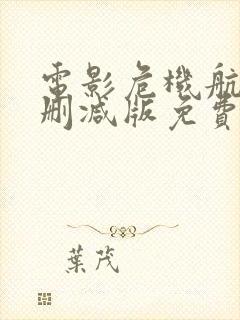 電影危機航
刪減版免費
葉茂